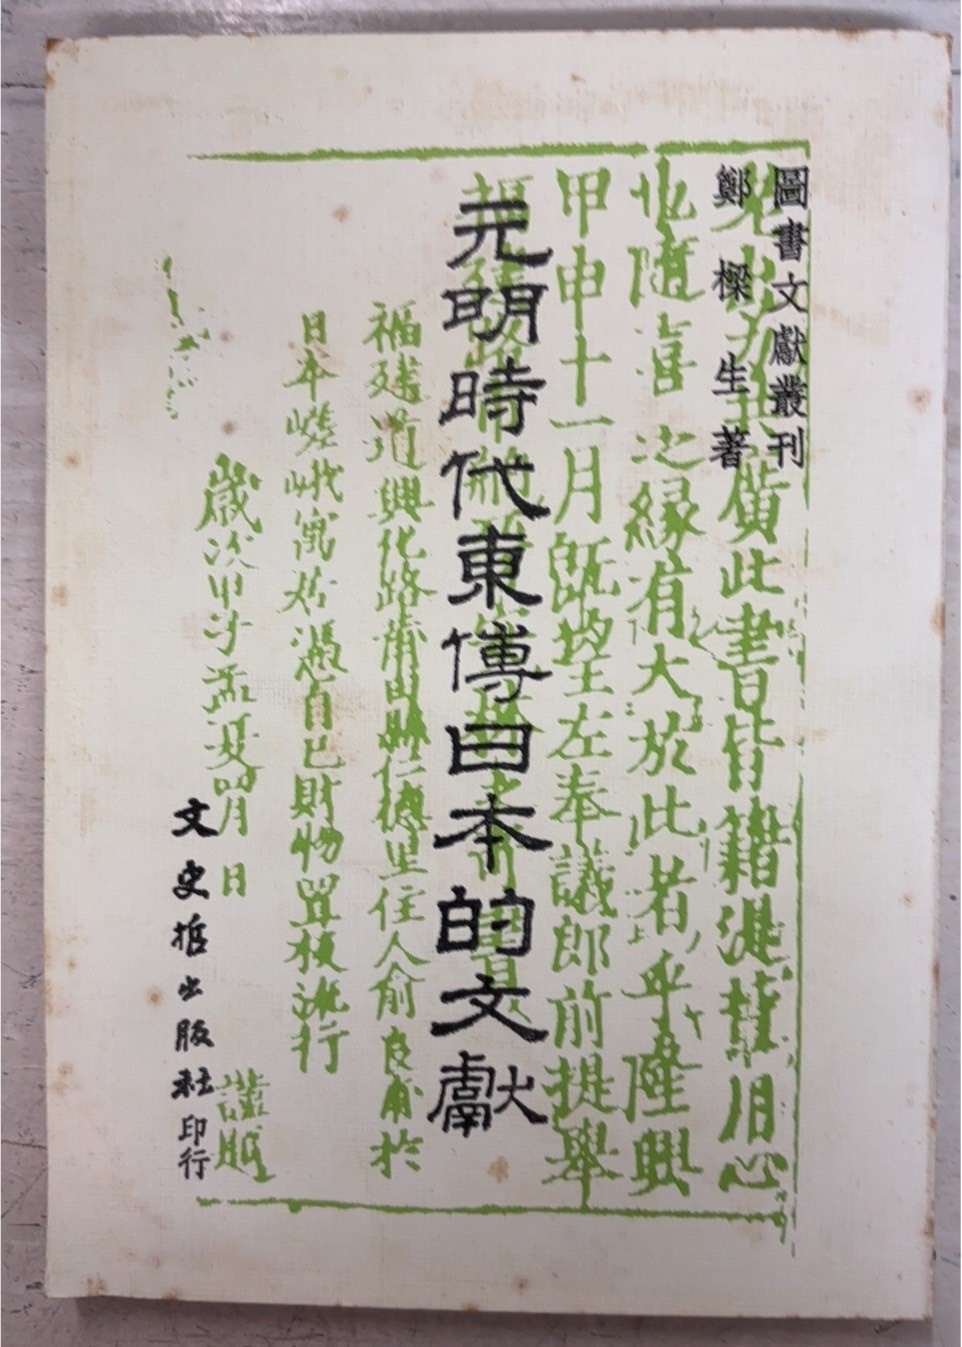 圖書文獻叢刊
鄭樑生著
廣此書皆籍
也隨喜之縁有大於此者乎隆興
甲申十一月既望左奉議郎前提舉
元明時代東傳日本的文獻
福建道興化路莆田縣仁德里住人俞良甫於
日本嵯峨寓居憑自己財物置板流行
歲次甲子孟夏四月 日 謹題
文史哲出版社印行